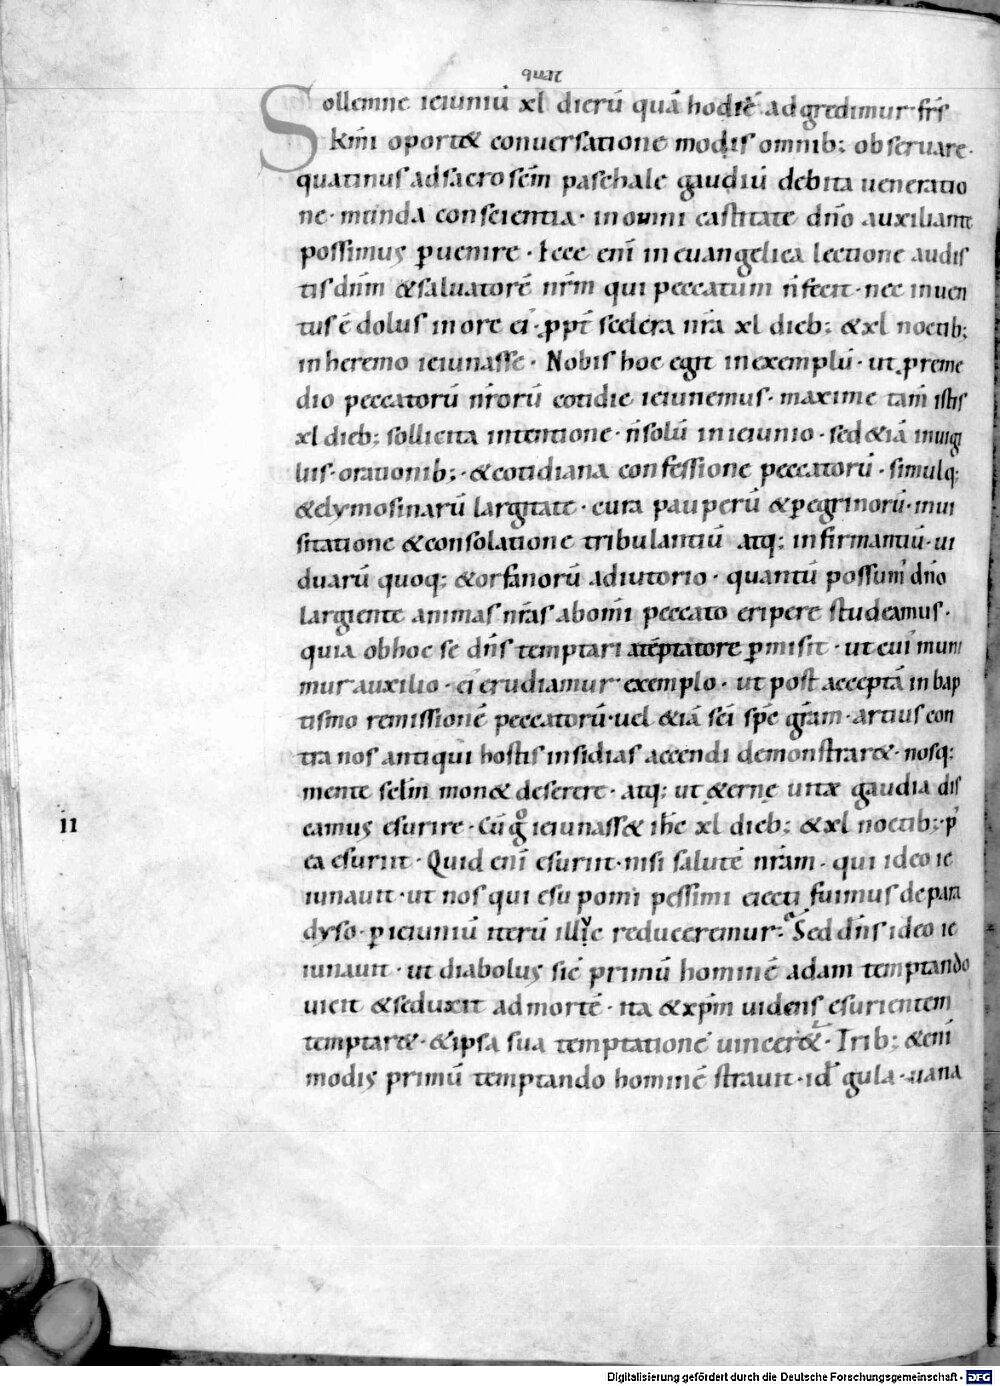 quat
Sollemne ieiuniū xl dierū quā hodie adgredimur frs̄
km̄i oport& conuersatione modis omnib; obseruare·
quatinus ad sacrosc̄m paschale gaudiū debita ueneratio
ne· munda conscientia· in omni castitate dn̄o auxiliante
possimus ꝑuenire· Ecce enī in euangelica lectione audis
tis dn̄m & saluatorē nr̄m qui peccatum n̄ fecit· nec inuen
tus ē dolus in ore ei· ꝓpt̄ scelera nr̄a xl dieb; & xl noctib;
in heremo ieiunasse· Nobis hoc egit in exemplū· ut ꝓ reme
dio peccatorū nr̄orū cotidie ieiunemus· maxime tam̄ istis
xl dieb; sollicita intentione· n̄ solū in ieiunio· sed &iā in uigi
liis· orationib;· & cotidiana confessione peccatorū· simulq;
& elymosinarū largitate· cura pauperū & ꝑegrinorū· inui
sitatione & consolatione tribulantiū atq; infirmantiū· ui
duarū quoq; & orfanorū adiutorio· quantū possum' dn̄o
largiente animas nr̄as ab om̄i peccato eripere studeamus·
quia ob hoc se dn̄s temptari a tēptatore ꝑmisit· ut cui' muni
mur auxilio· ei' erudiamur exemplo· ut post acceptā in bap
tismo remissionē peccatorū· uel &iā sc̄i sp̄c gr̄am· artius con
tra nos antiqui hostis insidias accendi demonstrar&· nosq;
mente sc̄lm mon& deserere· atq; ut ęternę uitæ gaudia dis
camus esurire· Cū gͦ ieiunass& ih̄c xl dieb; & xl noctib;· p'
ea esurit· Quid enī esurit· nisi salutē nr̄am· qui ideo ie
iunauit· ut nos qui esu pomi pessimi eiecti fuimus de para
dyso· ꝑ ieiuniū iterū illuc reduceremur· Sed dn̄s ideo ie
iunauit· ut diabolus sic̄ primū hominē adam temptando
uicit & seduxit ad mortē· ita & xp̄m uidens esurientem
temptar&· & ipsa sua temptatione uincer&· Trib; &enī
modis primū temptando hominē strauit· id' gula· uana
ii
Digitalisierung gefördert durch die Deutsche Forschungsgemeinschaft - DFG